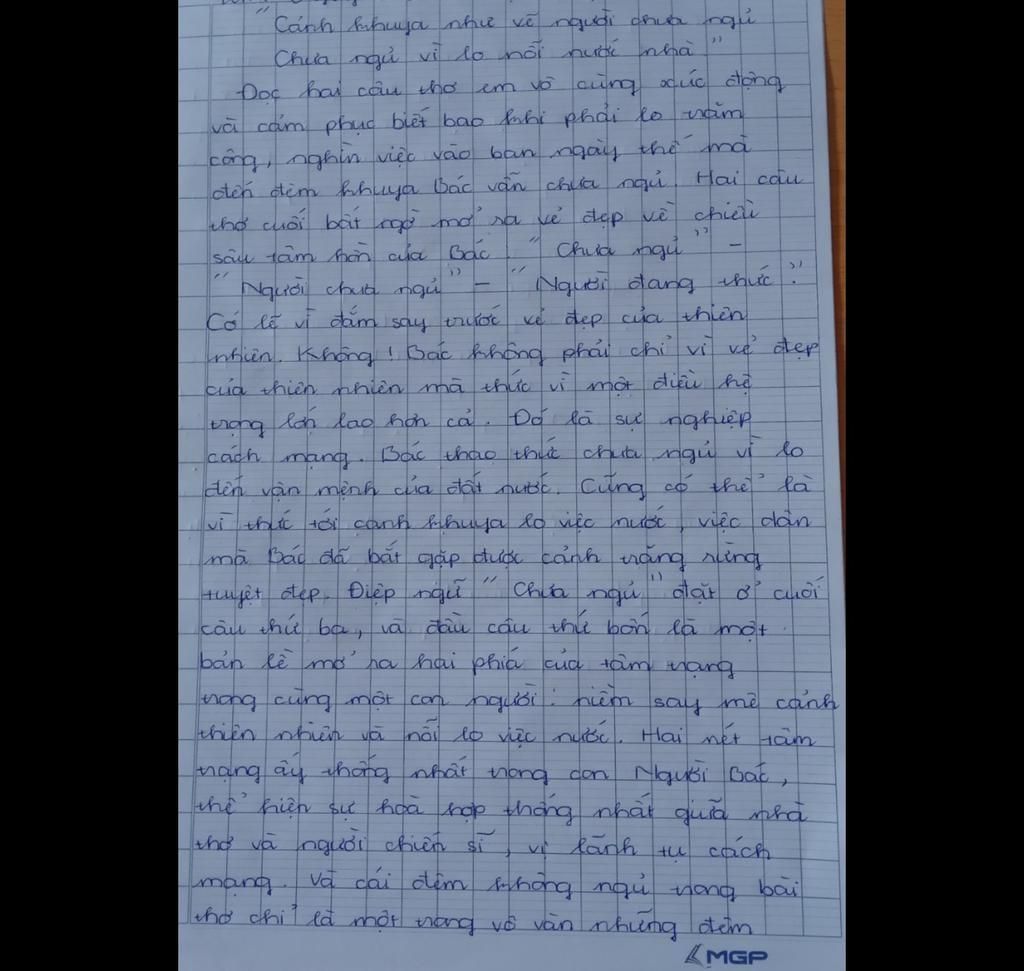 "Cảnh khuya như vẽ người chưa ngủ
Chưa ngủ vì lo nỗi nước nhà"
Đọc hai câu thơ em vô cùng xúc động
và cảm phục biết bao khi phải lo trăm
công, nghìn việc vào ban ngày thế mà
đến đêm khuya Bác vẫn chưa ngủ. Hai câu
thơ cuối bất ngờ mở ra vẻ đẹp về chiều
sâu tâm hồn của Bác. "Chưa ngủ" -
"Người chưa ngủ" - "Người đang thức".
Có lẽ vì đắm say trước vẻ đẹp của thiên
nhiên. Không! Bác không phải chỉ vì vẻ đẹp
của thiên nhiên mà thức vì một điều hệ
trọng lớn lao hơn cả. Đó là sự nghiệp
cách mạng. Bác thao thức chưa ngủ vì lo
đến vận mệnh của đất nước. Cũng có thể là
vì thức tới canh khuya lo việc nước, việc dân
mà Bác đã bắt gặp được cảnh trăng rừng
tuyệt đẹp. Điệp ngữ "Chưa ngủ" đặt ở cuối
câu thứ ba, và đầu câu thứ bốn là một
bản lề mở ra hai phía của tâm trạng
trong cùng một con người: niềm say mê cảnh
thiên nhiên và nỗi lo việc nước. Hai nét tâm
trạng ấy thống nhất trong con Người Bác,
thể hiện sự hoà hợp thống nhất giữa nhà
thơ và người chiến sĩ, vị lãnh tụ cách
mạng. Và cái đêm không ngủ trong bài
thơ chỉ là một trong vô vàn những đêm
MGP